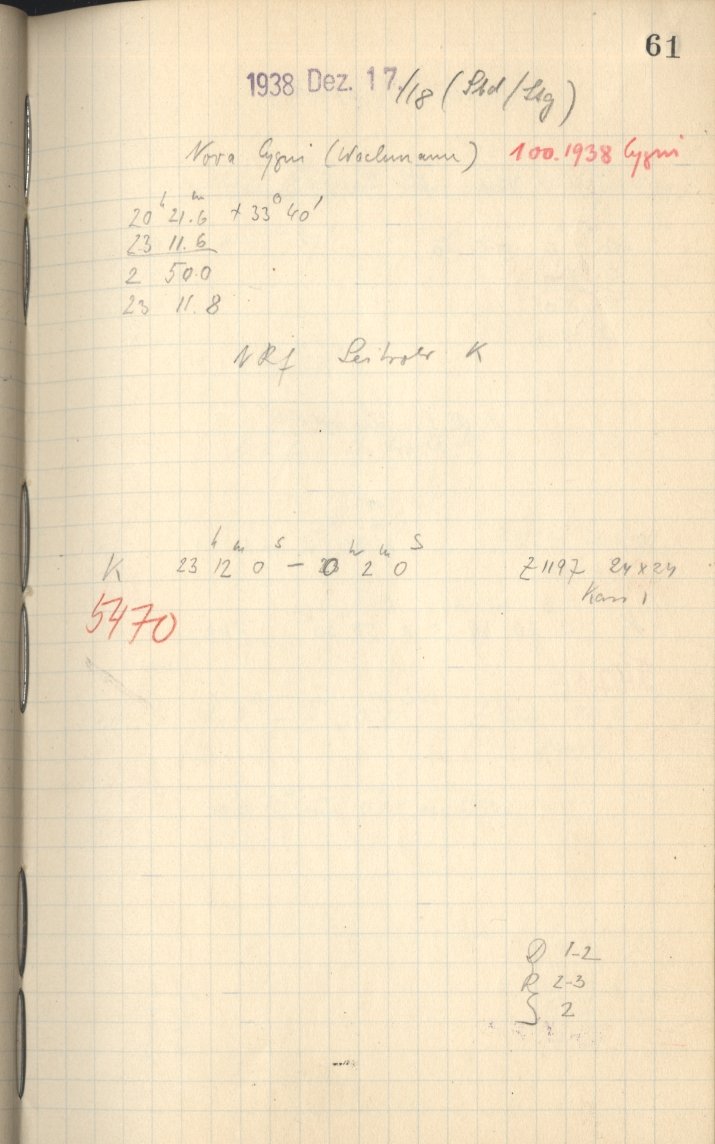 61
1938 Dez. 17./18 (Sbd/Stg)
Nova Cygni (Wachmann) 100.1938 Cygni
20h 21.6m + 33° 40'
23 11.6
2 50.0
23 11.8
K
K 23h 12m 0s – 0h 2m 0s Z 1197 24x24
5470
D 1-2
R 2-3
2